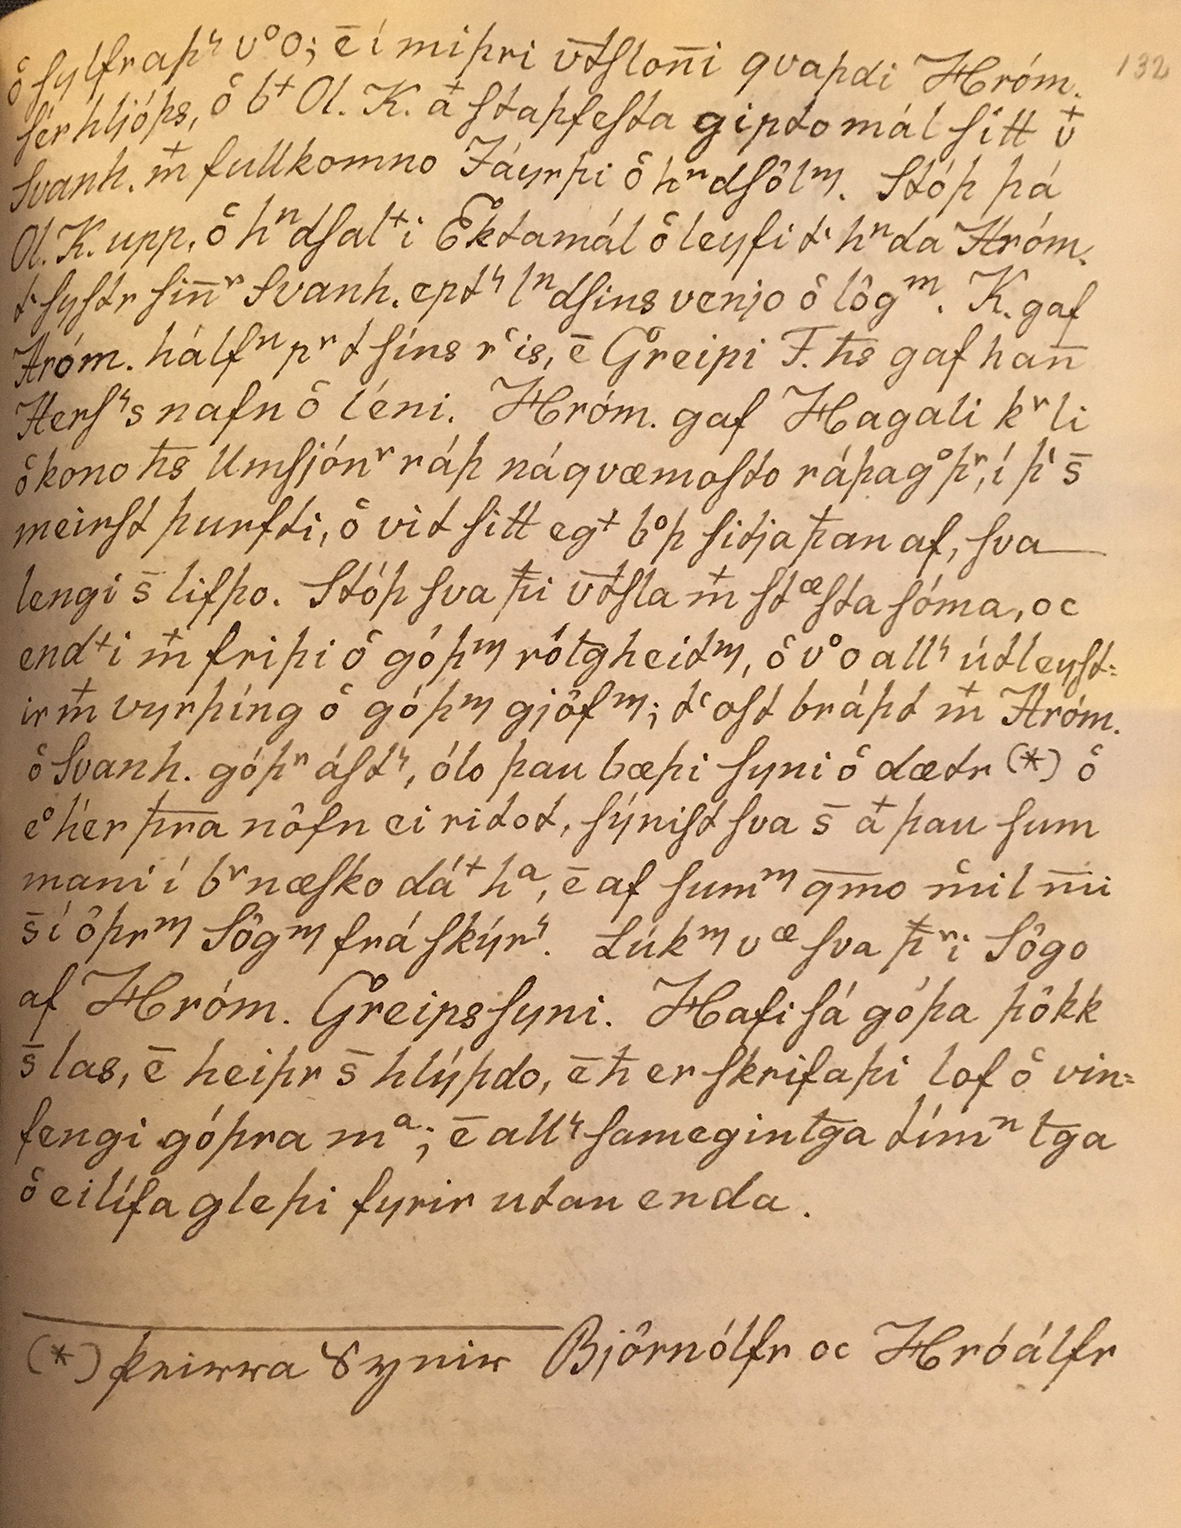 132
ô sylfraþ᷑ vºo; ē í miþri v̄tslon̄i qvaþdi Hróm.
sérhljóþs, ô b⁺ Ol. K. a⁺ staþfesta giptomál sitt v⁺
Svanh. m̄⁺ fullkomno Jáyrþi ô hⁿdsôlᵐ. Stóþ þá
Ol. K. upp, ô hⁿdsal⁺i Ektamál ô leyfi tⁱ hⁿda Hróm.
tⁱ systr sin̄ʳ Svanh. ept᷑ lⁿdsins venjo ô lôgᵐ. K. gaf
Hróm. hálfⁿ pʳt síns rᶜis, ē Greipi F. h̄s gaf han̄
Hers᷑s nafn ô léni. Hróm. gaf Hagali kʳli
ô kono h̄s Umsjónʳ ráþ náqvæmosto ráþagºþʳ, í þⁱ s̄
meirst þurfti, ô vit sitt eg⁺ bºþ sitja þ̄an af, sva
lengi s̄ lifþo. Stóþ sva þ̄i v̄tsla m̄⁺ stᵆsta sóma, oc
end⁺i m̄⁺ friþi ô góþᵐ rôt̄gheitᵐ, ô vºo all᷑ útleyst=
ir m̄⁺ vyrþíng ô góþᵐ gjôfᵐ; tᶜost bráþt m̄⁺ Hróm.
ô Svanh. góþʳ ást᷑, ólo þau bæþi syni ô dætr (*) ô
eº hér þ̄ra nôfn ei ritot, sýnist sva s̄ a⁺ þau sum
mani í bʳnæsko dá⁺ hᵃ, ē af sumᵐ q̄mo m̊il m̄i
s̄ í ôþrᵐ Sôgᵐ frá skýr᷑. Lúkᵐ vᵆ sva þ̄ʳi Sôgo
af Hróm. Greipssyni. Hafi sá góþa þôkk
s̄ las, ē heiþr s̄ hlýþdo, ē h̄ er skrifaþi lof ô vin=
fengi góþra mᵃ; ē all᷑ samegint̄ga tímⁿt̄ga
ô eilífa gleþi fyrir utan enda.
(*) þeirra Synir Bjôrnólfr oc Hróálfr